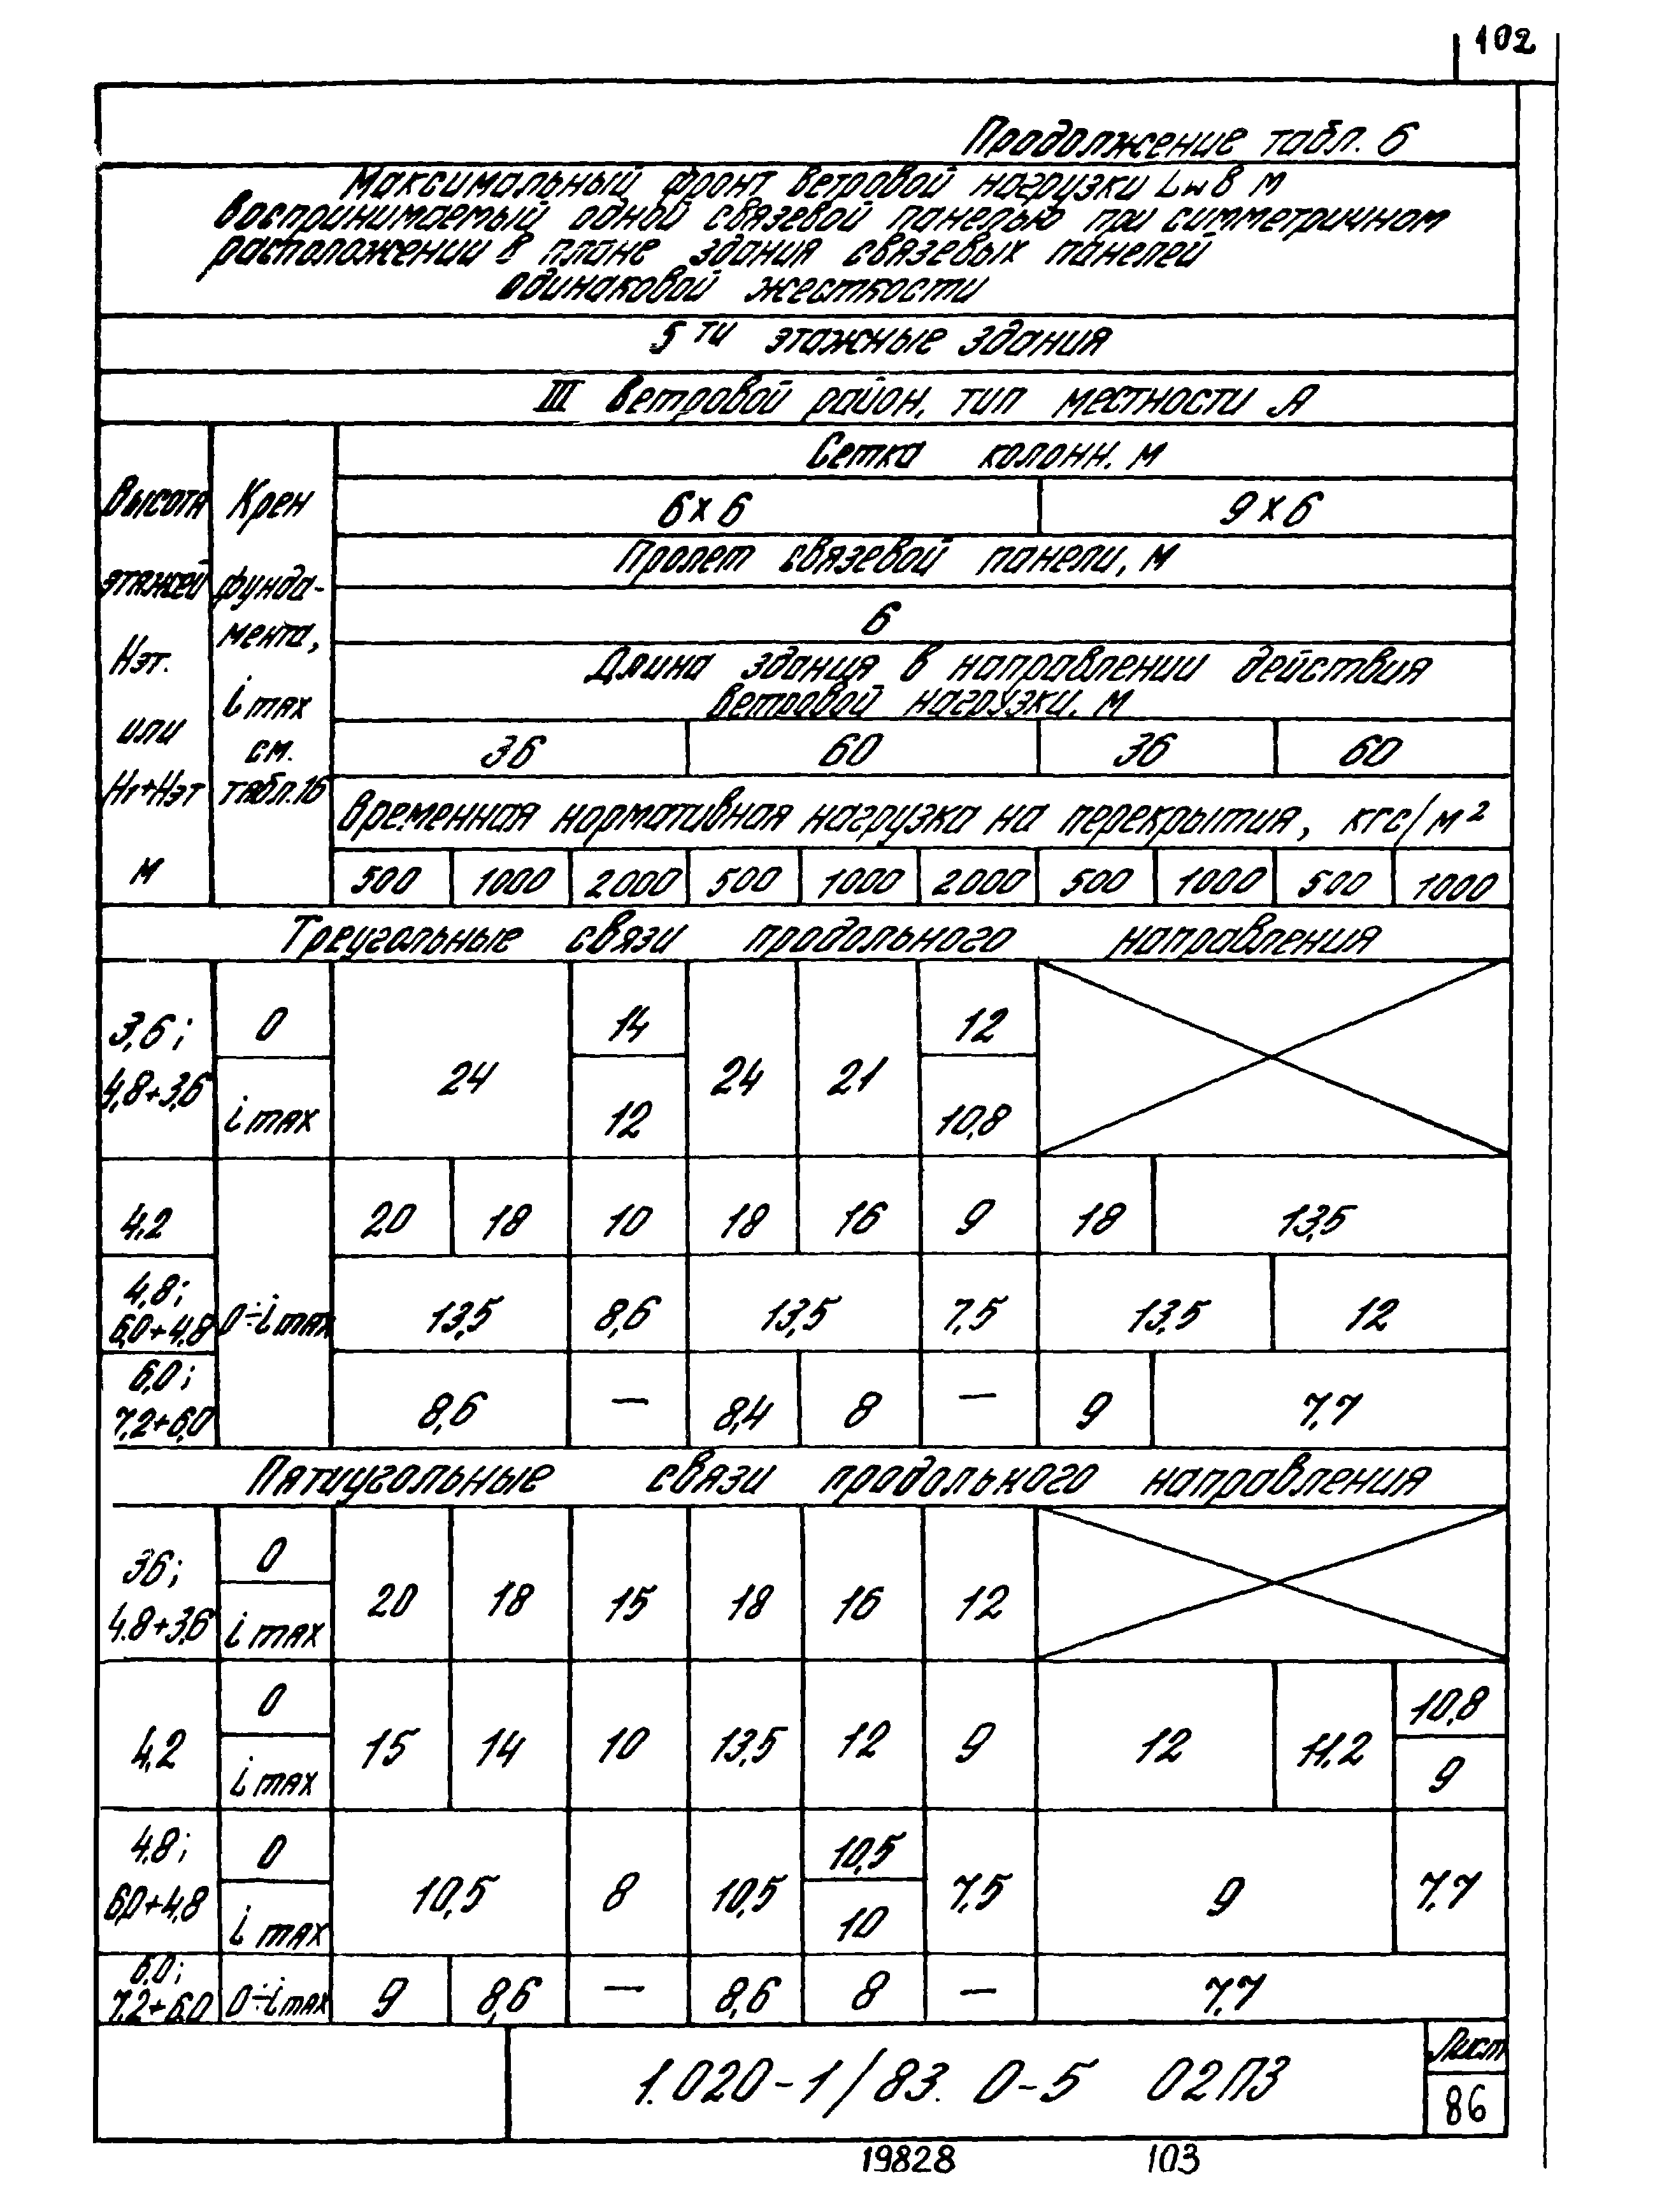 102
Продолжение табл. 6
Максимальный фронт ветровой нагрузки Lw в м
воспринимаемый одной связевой панелью при симметричном
расположении в плане здания связевых панелей
одинаковой жесткости
5ти этажные здания
III Ветровой район, тип местности А
Высота этажей Нэт. или Н1+Нэт м
Крен фунда-мента, i max см. табл.16
Сетка колонн. м
6х6 9х6
Пролет связевой панели, м
6
Длина здания в направлении действия
ветровой нагрузки. м
36 60 36 60
Временная нормативная нагрузка на перекрытия, кгс/м²
500 1000 2000 500 1000 2000 500 1000 500 1000
Треугольные связи продольного направления
3,6; 0 14 12
24 24 21
4,8+3,6 i max 12 10,8
4,2 20 18 10 18 16 9 18 13,5
4,8;
6,0+4,8 0÷i max 13,5 8,6 13,5 7,5 13,5 12
6,0;
7,2+6,0 8,6 — 8,4 8 — 9 7,7
Пятиугольные связи продольного направления
36; 0
20 18 15 18 16 12
4.8+3,6 i max
0 10,8
4,2 15 14 10 13,5 12 9 12 11.2
i max 9
4.8; 0 10,5
6,0+4,8 10,5 8 10,5 7,5 9 7,7
i max 10
6.0;
7.2+6.0 0÷i max 9 8,6 — 8,6 8 — 7,7
1.020-1/83. 0-5 02ПЗ
Лист
86
19828 103